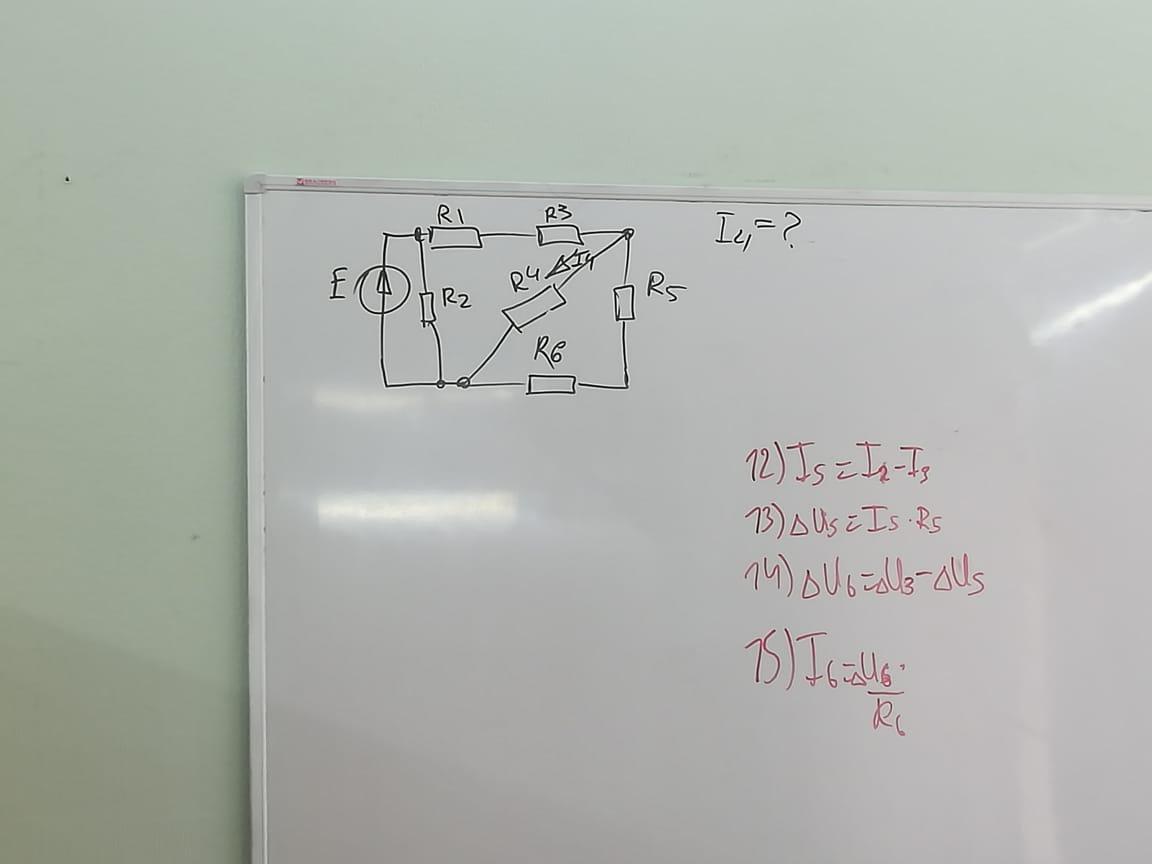 BRAUBERG
R1
R3
I4=?
E
R2
R4
I4
R5
R6
12) I5=I2-I3
13) ΔU5=I5·R5
14) ΔU6=ΔU3-ΔU5
15) I6=ΔU6
R6